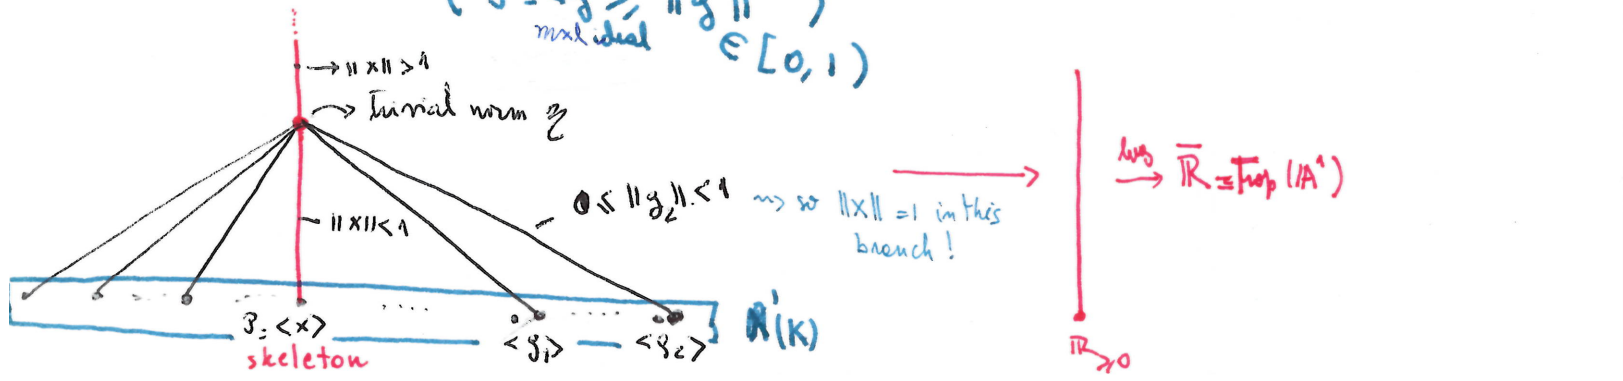 mxl ideal
∈ [0, 1)
→ ||x|| > 1
Trivial norm η
||x|| < 1
0 ≤ ||g₂|| < 1 ~> so ||x|| = 1 in this
branch!
log
→ R̄ = Trop(A¹)
P = <x>
skeleton
<g₁>
<g₂>
A¹(K)
R≥0